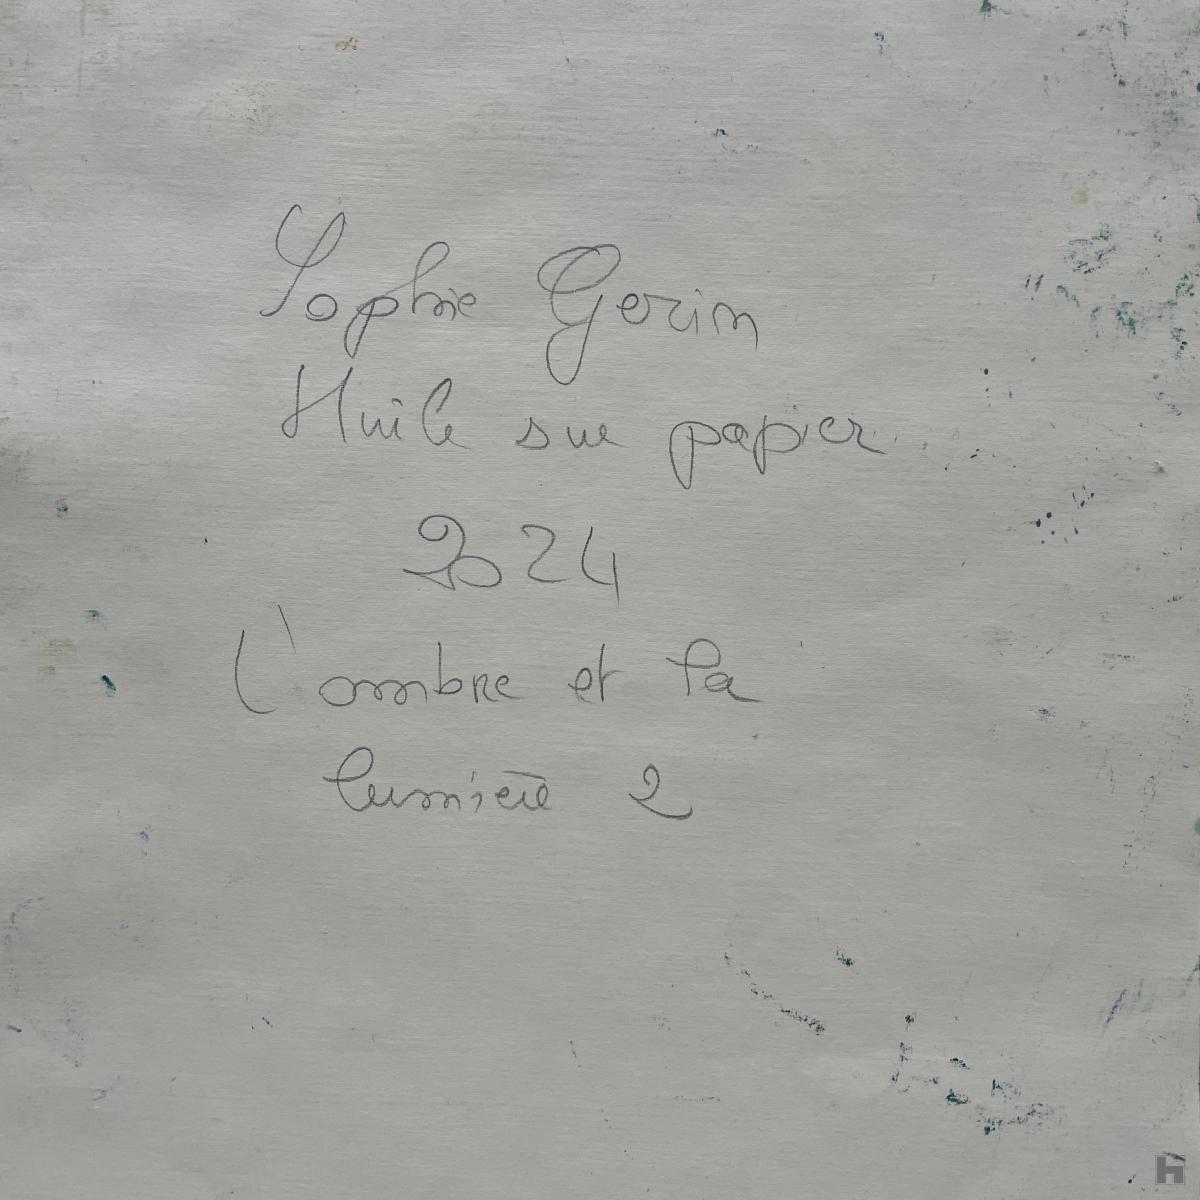 Sophie Gerin
Huile sur papier
2024
L'ombre et la
lumière 2
h